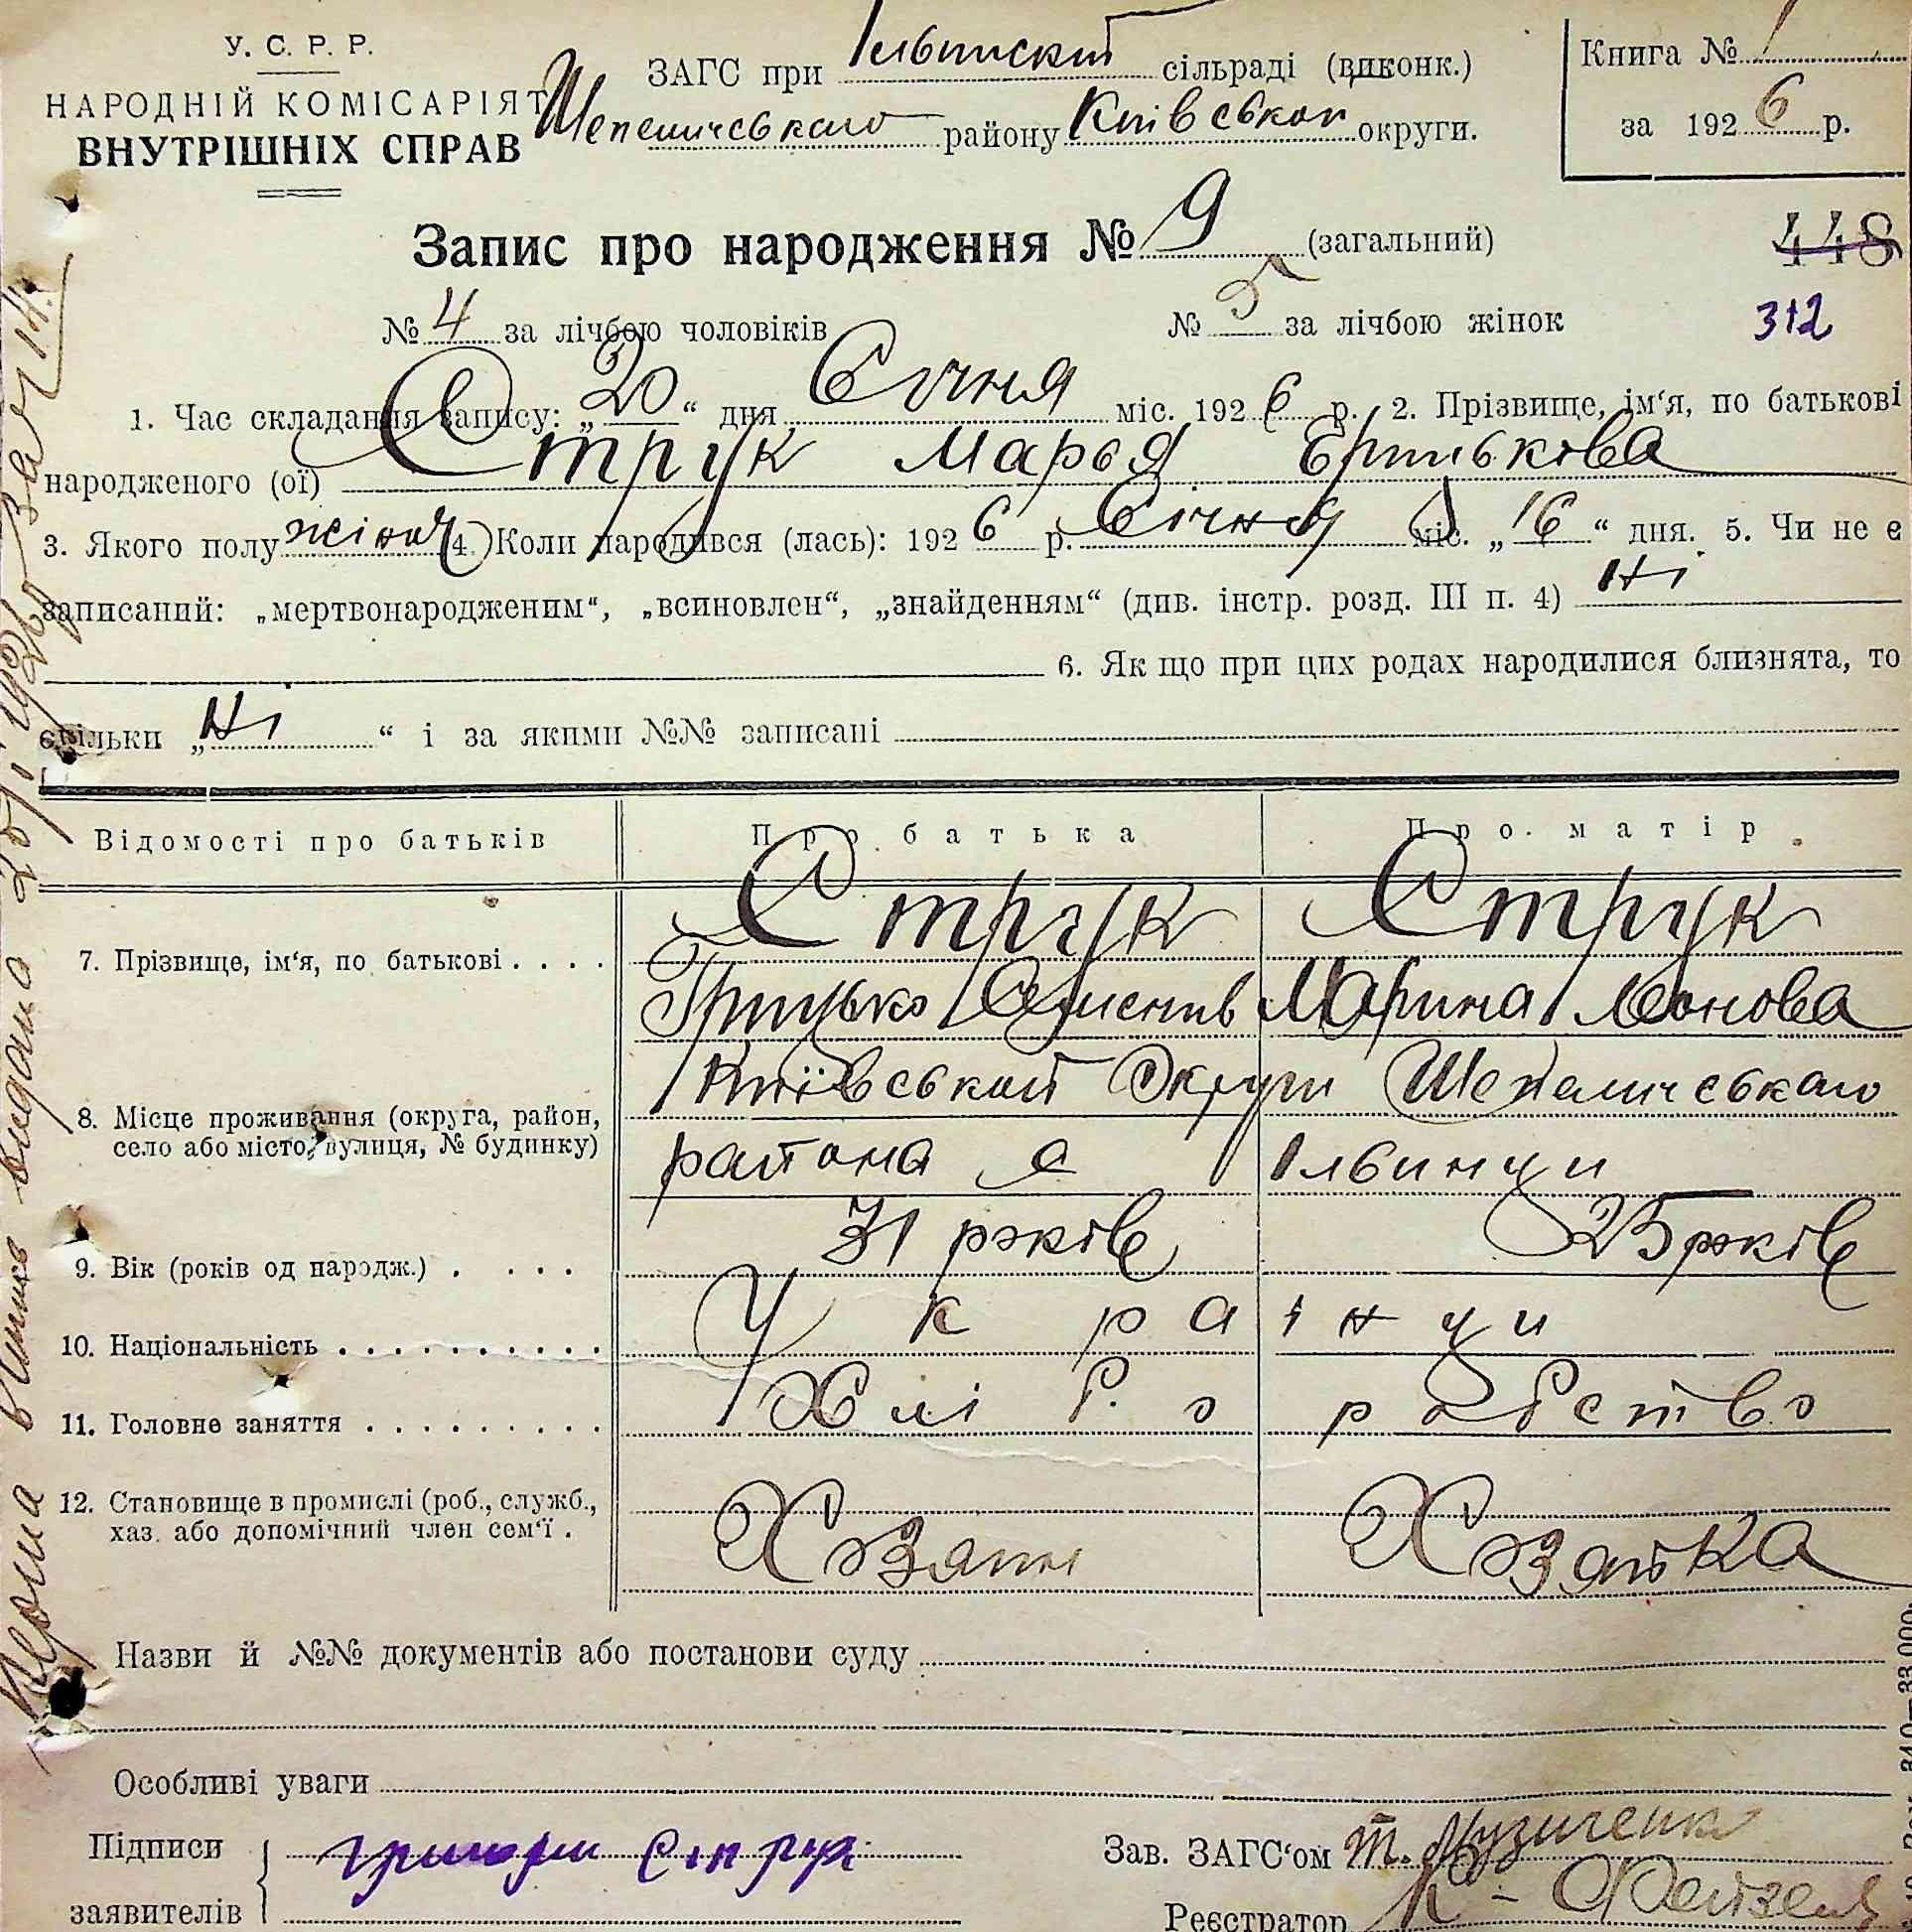 У. С. Р. Р.
НАРОДНІЙ КОМІСАРІЯТ
ВНУТРІШНІХ СПРАВ
ЗАГС при сільраді (виконк.)
Шепелическаго району Київськой округи.
Книга № 1
за 1926 р.
Запис про народження № 9 (загальний)
448
№ 4 за лічбою чоловіків № 5 за лічбою жінок
312
1. Час складання запису: „20“ дня Січня міс. 1926 р. 2. Прізвище, ім‘я, по батькові
народженого (ої) Струк Марья
3. Якого полу жіноч 4. Коли народився (лась): 1926 р. Січня міс. „16“ дня. 5. Чи не є
записаний: „мертвонародженим“, „всиновлен“, „знайденням“ (див. інстр. розд. III п. 4) Ні
6. Як що при цих родах народилися близнята, то
скільки „Ні“ і за якими №№ записані
Відомості про батьків Про батька Про матір
7. Прізвище, ім‘я, по батькові . . . . Струк Струк
Грицько Семенив Марина Леонова
8. Місце проживання (округа, район, Київськой Округи Шепеличськаго
село або місто, вулиця, № будинку) района с Ільинци
9. Вік (років од народж.) . . . . 31 років 25 років
10. Національність . . . . . . . . . . Українци
11. Головне заняття . . . . . . . . . Хліборобство
12. Становище в промислі (роб., служб.,
хаз. або допомічний член сем‘ї . Хозяин Хозяйка
Назви й №№ документів або постанови суду
Особливі уваги
Підписи
заявителів
Григори Струк
Зав. ЗАГС‘ом Музиченк
Реєстратор